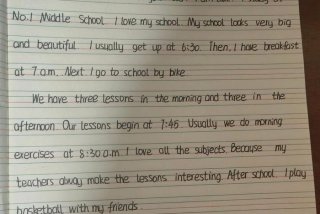 No.1 Middle School. I love my school. My school looks very big
and beautiful. I usually get up at 6:30. Then, I have breakfast
at 7 a.m. Next I go to school by bike.
We have three lessons in the morning and three in the
afternoon. Our lessons begin at 7:45. Usually we do morning
exercises at 8:30 a.m. I love all the subjects. Because my
teachers alway make the lessons interesting. After school, I play
basketball with my friends